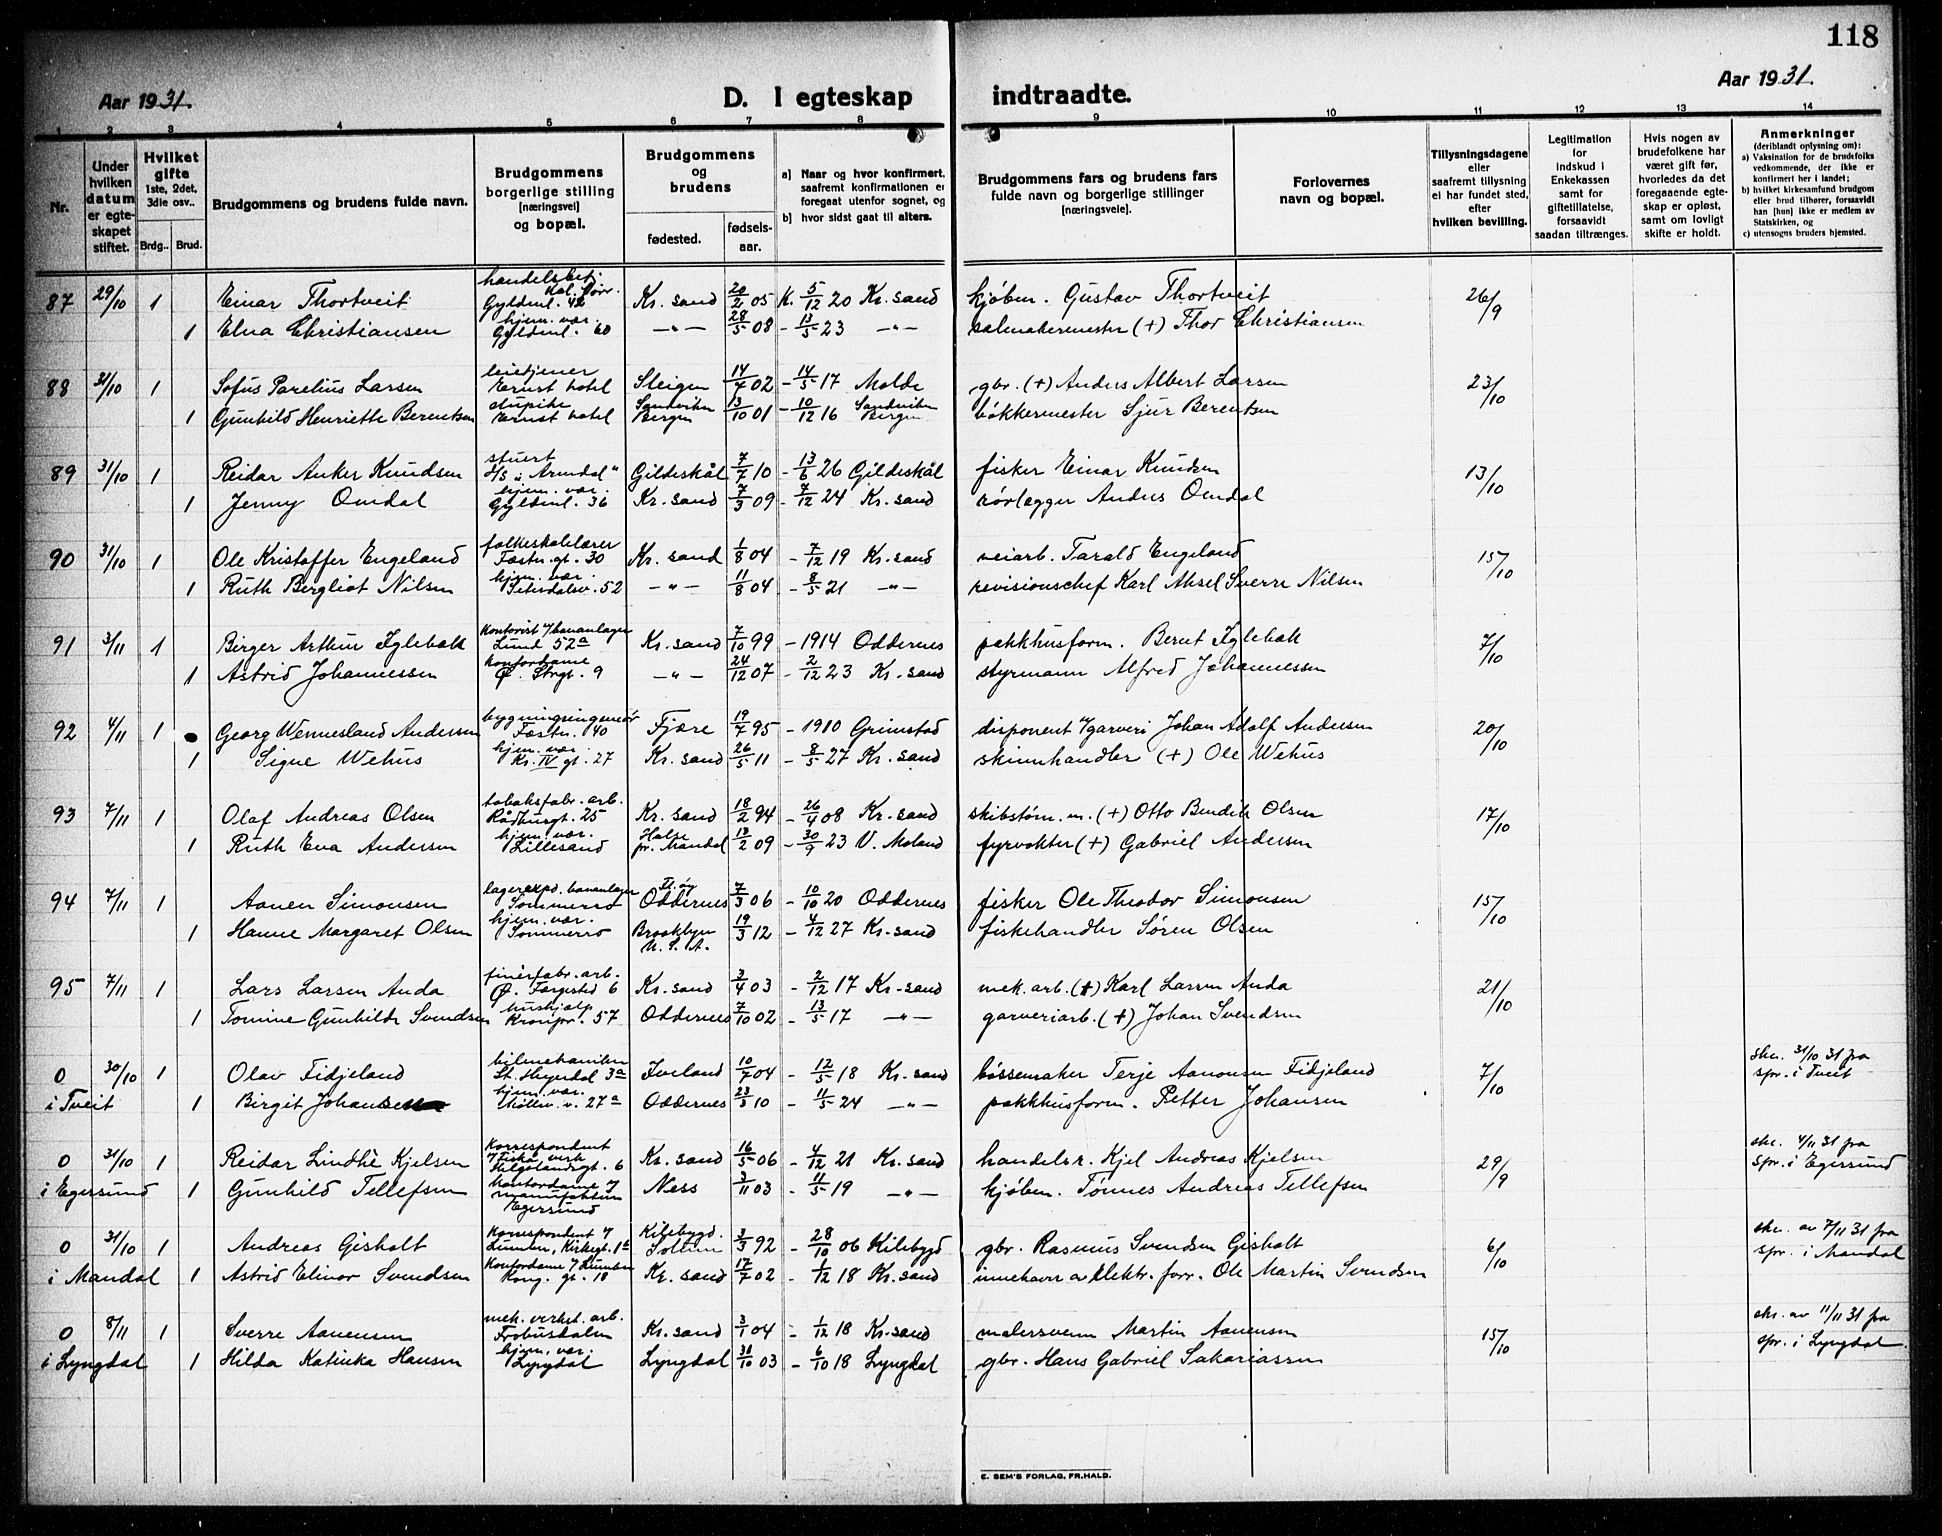 118
Aar 1931. D. I egteskap indtraadte. Aar 1931.
1 2 3 4 5 6 7 8 9 10 11 12 13 14
Nr.
Under hvilken datum er egteskapet stiftet.
Hvilket gifte 1ste, 2det, 3die osv..
Brdg.. Brud.
Brudgommens og brudens fulde navn.
Brudgommens borgerlige stilling [næringsvei] og bopæl.
Brudgommens og brudens
fødested. fødselsaar.
a] Naar og hvor konfirmert, saafremt konfirmationen er foregaat utenfor sognet, og
b] hvor sidst gaat til alters.
Brudgommens fars og brudens fars fulde navn og borgerlige stillinger [næringsveie].
Forlovernes navn og bopæl.
Tillysningsdagene eller saafremt tillysning ei har fundet sted, efter hvilken bevilling.
Legitimation for indskud i Enkekassen samt for giftetillatelse, forsaavidt saadan tiltrænges.
Hvis nogen av brudefolkene har været gift før, hvorledes da det foregaaende egteskap er opløst, samt om lovligt skifte er holdt.
Anmerkninger (deriblandt oplysning om):
a) Vaksination for de brudefolks vedkommende, der ikke er konfirmert her i landet;
b) hvilket kirkesamfund brudgom eller brud tilhører, forsaavidt han [hun] ikke er medlem av Statskirken, og
c) utensogns bruders hjemsted.
87 29/10 1 Einar Thortveit handelsbetj. Gyldenl. 42 Kr. sand 20/2 05 K. 5/12 20 Kr. sand kjøbm. Gustav Thortveit 26/9
1 Elna Christiansen hjem. vær. Gyldenl. 60 —"— 28/5 08 - 13/5 23 —"— salmakermester (+) Thor Christiansen
88 31/10 1 Sofus Parelius Larsen leietjener Ernst hotel Steigen 14/7 02 - 14/5 17 Molde gbr. (+) Anders Albert Larsen 23/10
1 Gunhild Henriette Berentsen Ernst hotel Sandviken Bergen 13/10 01 - 10/12 16 Sandviken Bergen bøkkermester Sjur Berentsen
89 31/10 1 Reidar Anker Knudsen stuert D/S "Arendal" Gildeskål 7/7 10 - 13/6 26 Gildeskål fisker Einar Knudsen 13/10
1 Jenny Omdal hjem. vær. Gyldenl. 36 Kr. sand 7/3 09 - 7/12 24 Kr. sand rørlegger Anders Omdal
90 31/10 1 Ole Kristoffer Engeland folkeskolelærer Festn. gt. 30 Kr. sand 1/8 04 - 7/12 19 Kr. sand veiarb. Tarald Engeland 15/10
1 Ruth Bergliot Nilsen hjem. vær. Setesdalsv. 52 —"— 11/8 04 - 8/5 21 —"— revisionschef Karl Aksel Sverre Nilsen
91 3/11 1 Birger Arthur Iglebæk kontorist v/havnanlaget Lund 52a Kr. sand 7/10 99 - 1914 Oddernes pakkhusform. Bernt Iglebæk 7/10
1 Astrid Johannessen kontordame Ø. Strgt. 9 —"— 24/12 07 - 2/12 23 Kr. sand styrmann Alfred Johannessen
92 4/11 1 Georg Wennesland Andersen bygningsingeniør Festn. 40 Fjære 19/7 95 - 1910 Grimstad disponent v/garveri Johan Adolf Andersen 20/10
1 Signe Wehus hjem. vær. Kr. IV gt. 27 Kr. sand 26/5 11 - 8/5 27 Kr. sand skinnhandler (+) Ole Wehus
93 7/11 1 Olaf Andreas Olsen tobaksfabr. arb. Rådhusgt. 25 Kr. sand 18/2 94 - 26/4 08 Kr. sand skibstøm. m. (+) Otto Bendik Olsen 17/10
1 Ruth Eva Andersen hjem. vær. Lillesand Halse pr. Mandal 13/2 09 - 30/9 23 V. Moland fyrvokter (+) Gabriel Andersen
94 7/11 1 Aanen Simonsen lagerexpd. havnanlaget Sommerro Fl.øy Oddernes 7/3 06 - 10/10 20 Oddernes fisker Ole Theodor Simonsen 15/10
1 Hanne Margaret Olsen hjem. vær. Sommerro Brooklyn U. S. A. 19/3 12 - 4/12 27 Kr. sand fiskehandler Søren Olsen
95 7/11 1 Lars Larsen Anda finérfabr. arb. Ø. Færgested 6 Kr. sand 3/4 03 - 2/12 17 Kr. sand mek. arb. (+) Karl Larsen Anda 21/10
1 Tomine Gunhilde Svendsen hushjelp Kronpr. 57 Oddernes 7/10 02 - 13/5 17 —"— garveriarb. (+) Johan Svendsen
0 30/10 1 Olav Fidjeland bilmekaniker St. Heyerdal 3a Iveland 10/7 04 - 12/5 18 Kr. sand bøssemaker Terje Aanonsen Fidjeland 7/10 skr. 31/10 31 fra
i Tveit 1 Birgit Johansen hjem. vær. 27a Oddernes 23/3 10 - 11/5 24 —"— pakkhusform. Petter Johansen spr. i Tveit
0 31/10 1 Reidar Lindhé Kjelsen korrespondent v/Fiskå verk Helgolandsgt. 6 Kr. sand 16/5 06 - 4/12 21 Kr. sand handelsr. Kjel Andreas Kjelsen 29/9 skr. 4/11 31 fra
i Egersund 1 Gunhild Tellefsen kontordame v/ manufaktur Egersund Ness 3/11 03 - 11/5 19 —"— kjøbm. Tønnes Andreas Tellefsen spr. i Egersund
0 31/10 1 Andreas Gisholt korrespondent v/ Lumber, Kirkegt. 1b Kilebygd. Solum 3/3 92 - 28/10 06 Kilebygd gbr. Rasmus Svendsen Gisholt 6/10 skr. av 7/11 31 fra
i Mandal 1 Astrid Elinor Svendsen kontordame v/ Lumber Kong. gt. 18 Kr. sand 17/7 02 - 1/12 18 Kr. sand innehaver av elektr. forr. Ole Martin Svendsen spr. i Mandal
0 8/11 1 Sverre Aanensen mek. verkst. arb. Frobusdalen Kr. sand 3/1 04 - 1/12 18 Kr. sand malersvenn Martin Aanensen 15/10 skr. av 11/11 31 fra
i Lyngdal 1 Hilda Katinka Hansen hjem. vær. Lyngdal Lyngdal 31/10 03 - 6/10 18 Lyngdal gbr. Hans Gabriel Sakariassen spr. i Lyngdal.
E. SEM'S FORLAG, FR.HALD.